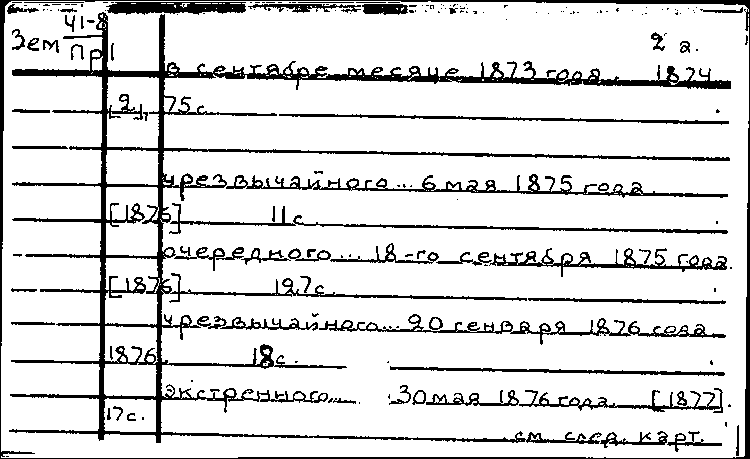 41-8
Зем Пр1
2 а.
в сентябре месяце 1873 года. 1874
[2], 75с
чрезвычайного... 6 мая 1875 года.
[1876] 11с.
очередного... 18-го сентября 1875 года
[1876]. 127с.
чрезвычайного... 20 генваря 1876 года
1876. 18с.
экстренного... 30 мая 1876 года. [1877].
17с.
см. след. карт.